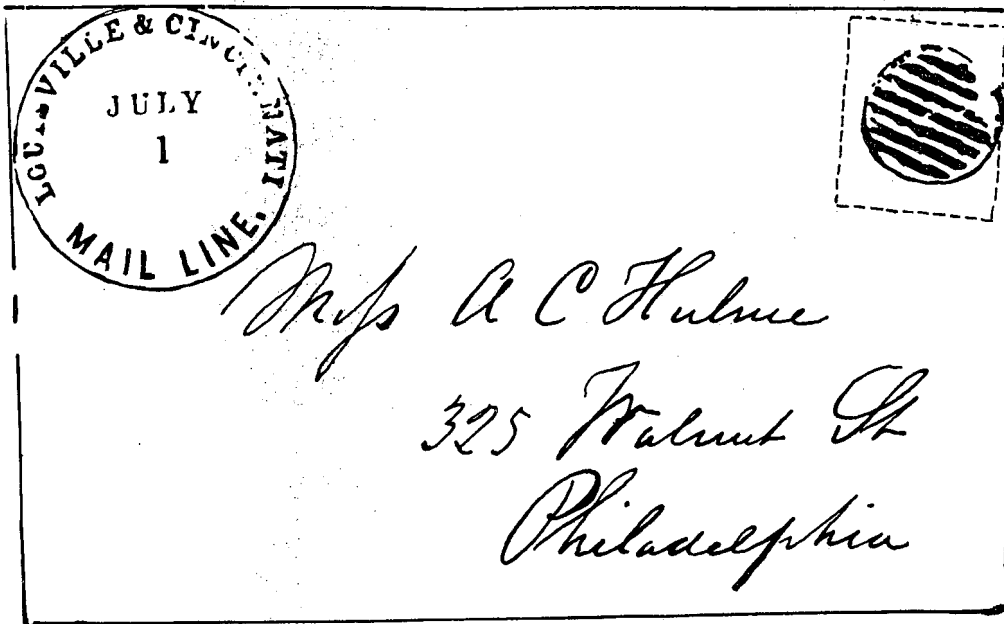 LOUISVILLE & CINCINNATI
JULY
1
MAIL LINE.
Miſs A C Hulme
325 Walnut St
Philadelphia